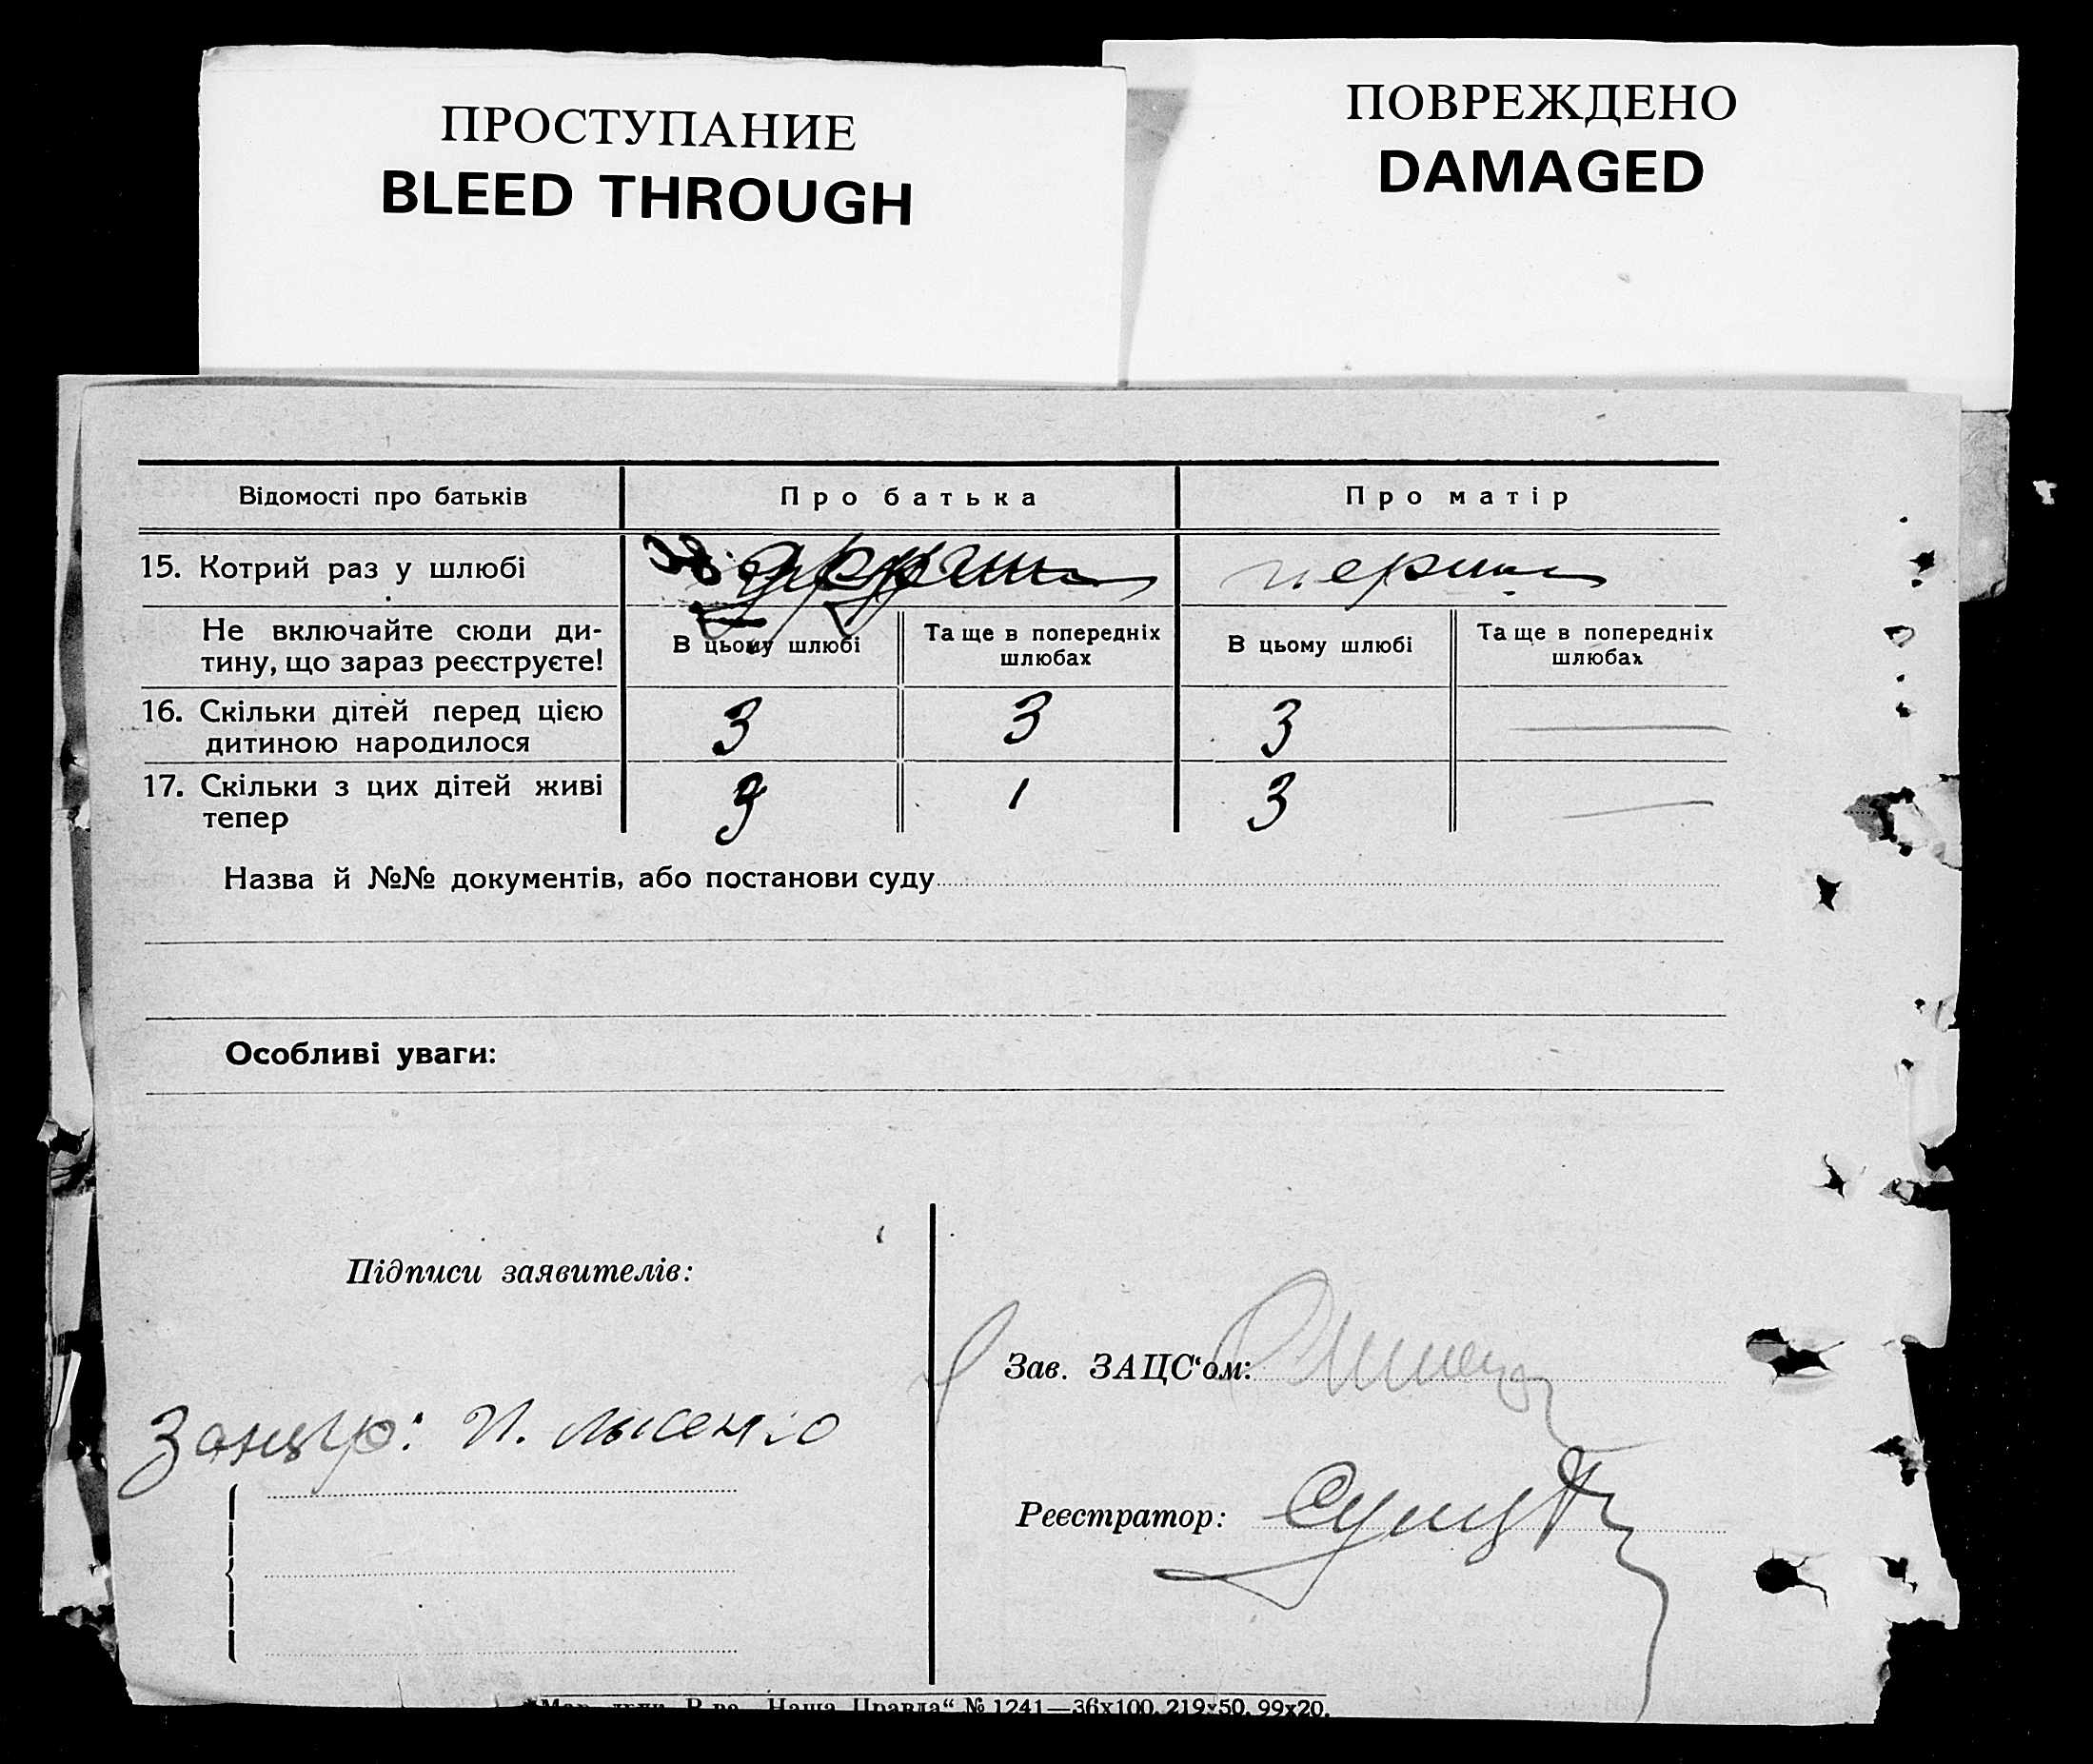 ПРОСТУПАНИЕ
BLEED THROUGH
ПОВРЕЖДЕНО
DAMAGED
Відомості про батьків
Про батька
Про матір
15. Котрий раз у шлюбі
перший
Не включайте сюди ди-
тину, що зараз реєструєте!
В цьому шлюбі
Та ще в попередніх
шлюбах
В цьому шлюбі
Та ще в попередніх
шлюбах
16. Скільки дітей перед цією
дитиною народилося
3
3
3
17. Скільки з цих дітей живі
тепер
3
1
3
Назва й №№ документів, або постанови суду
Особливі уваги:
Підписи заявителів:
И. Лысенко
Зав. ЗАЦС'ом:
Реєстратор:
„Наша Правда“ № 1241—36х100. 219х50. 99х20.